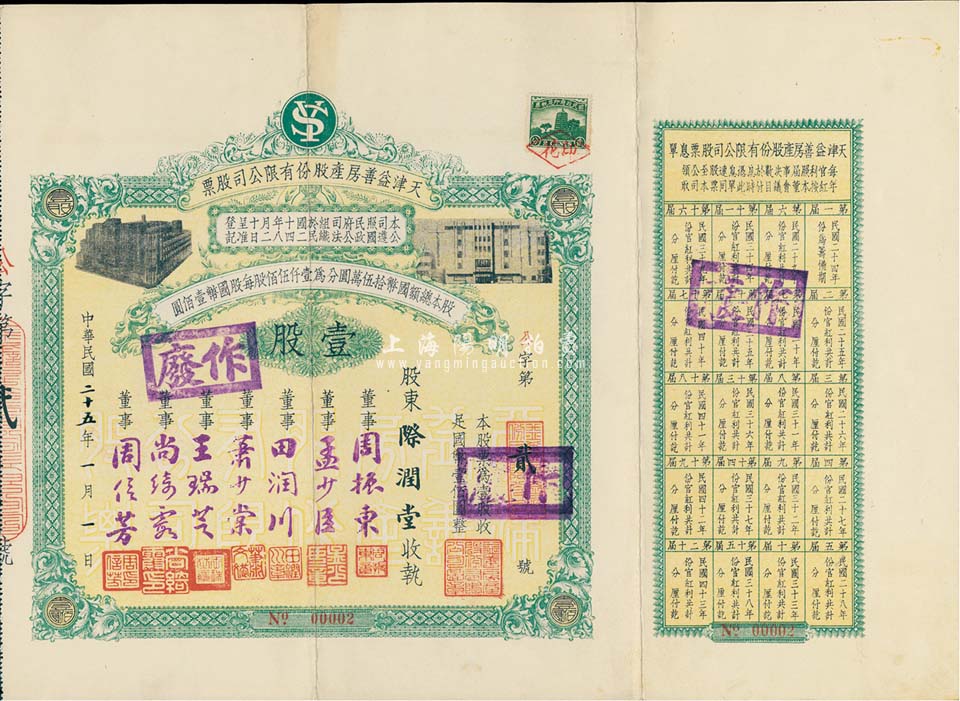 YS
天津益善房產股份有限公司股票
本公司遵照國民政府公司法組織於民國二十四年八月十二日呈准登記
股本總額國幣拾伍萬圓分為壹仟伍佰股每股國幣壹佰圓
壹股
字第貳號
本股票為壹股收
足國幣壹佰圓整
股東際潤堂收執
董事周振東
董事孟少臣
董事田潤川
董事蕭少棠
董事王瑞芝
董事尚綺雲
董事周信芳
中華民國二十五年一月一日
作廢
作廢
No 00002
上海陽明拍賣
www.yangmingauction.com
字第貳號
天津益善房產股份有限公司股票息單
每年官紅利按照本屆董事會決議數目於付息時憑此息單連同股票至本公司領取
第一屆
民國二十四年
份為籌備期
分 厘付訖
第二屆
民國二十五年
份官紅利共計
分 厘付訖
第三屆
民國二十六年
份官紅利共計
分 厘付訖
第四屆
民國二十七年
份官紅利共計
分 厘付訖
第五屆
民國二十八年
份官紅利共計
分 厘付訖
第六屆
民國二十九年
份官紅利共計
分 厘付訖
第七屆
民國三十年
份官紅利共計
分 厘付訖
第八屆
民國三十一年
份官紅利共計
分 厘付訖
第九屆
民國三十二年
份官紅利共計
分 厘付訖
第十屆
民國三十三年
份官紅利共計
分 厘付訖
第十一屆
民國三十四年
份官紅利共計
分 厘付訖
第十二屆
民國三十五年
份官紅利共計
分 厘付訖
第十三屆
民國三十六年
份官紅利共計
分 厘付訖
第十四屆
民國三十七年
份官紅利共計
分 厘付訖
第十五屆
民國三十八年
份官紅利共計
分 厘付訖
第十六屆
民國三十九年
份官紅利共計
分 厘付訖
第十七屆
民國四十年
份官紅利共計
分 厘付訖
第十八屆
民國四十一年
份官紅利共計
分 厘付訖
第十九屆
民國四十二年
份官紅利共計
分 厘付訖
第二十屆
民國四十三年
份官紅利共計
分 厘付訖
作廢
No 00002